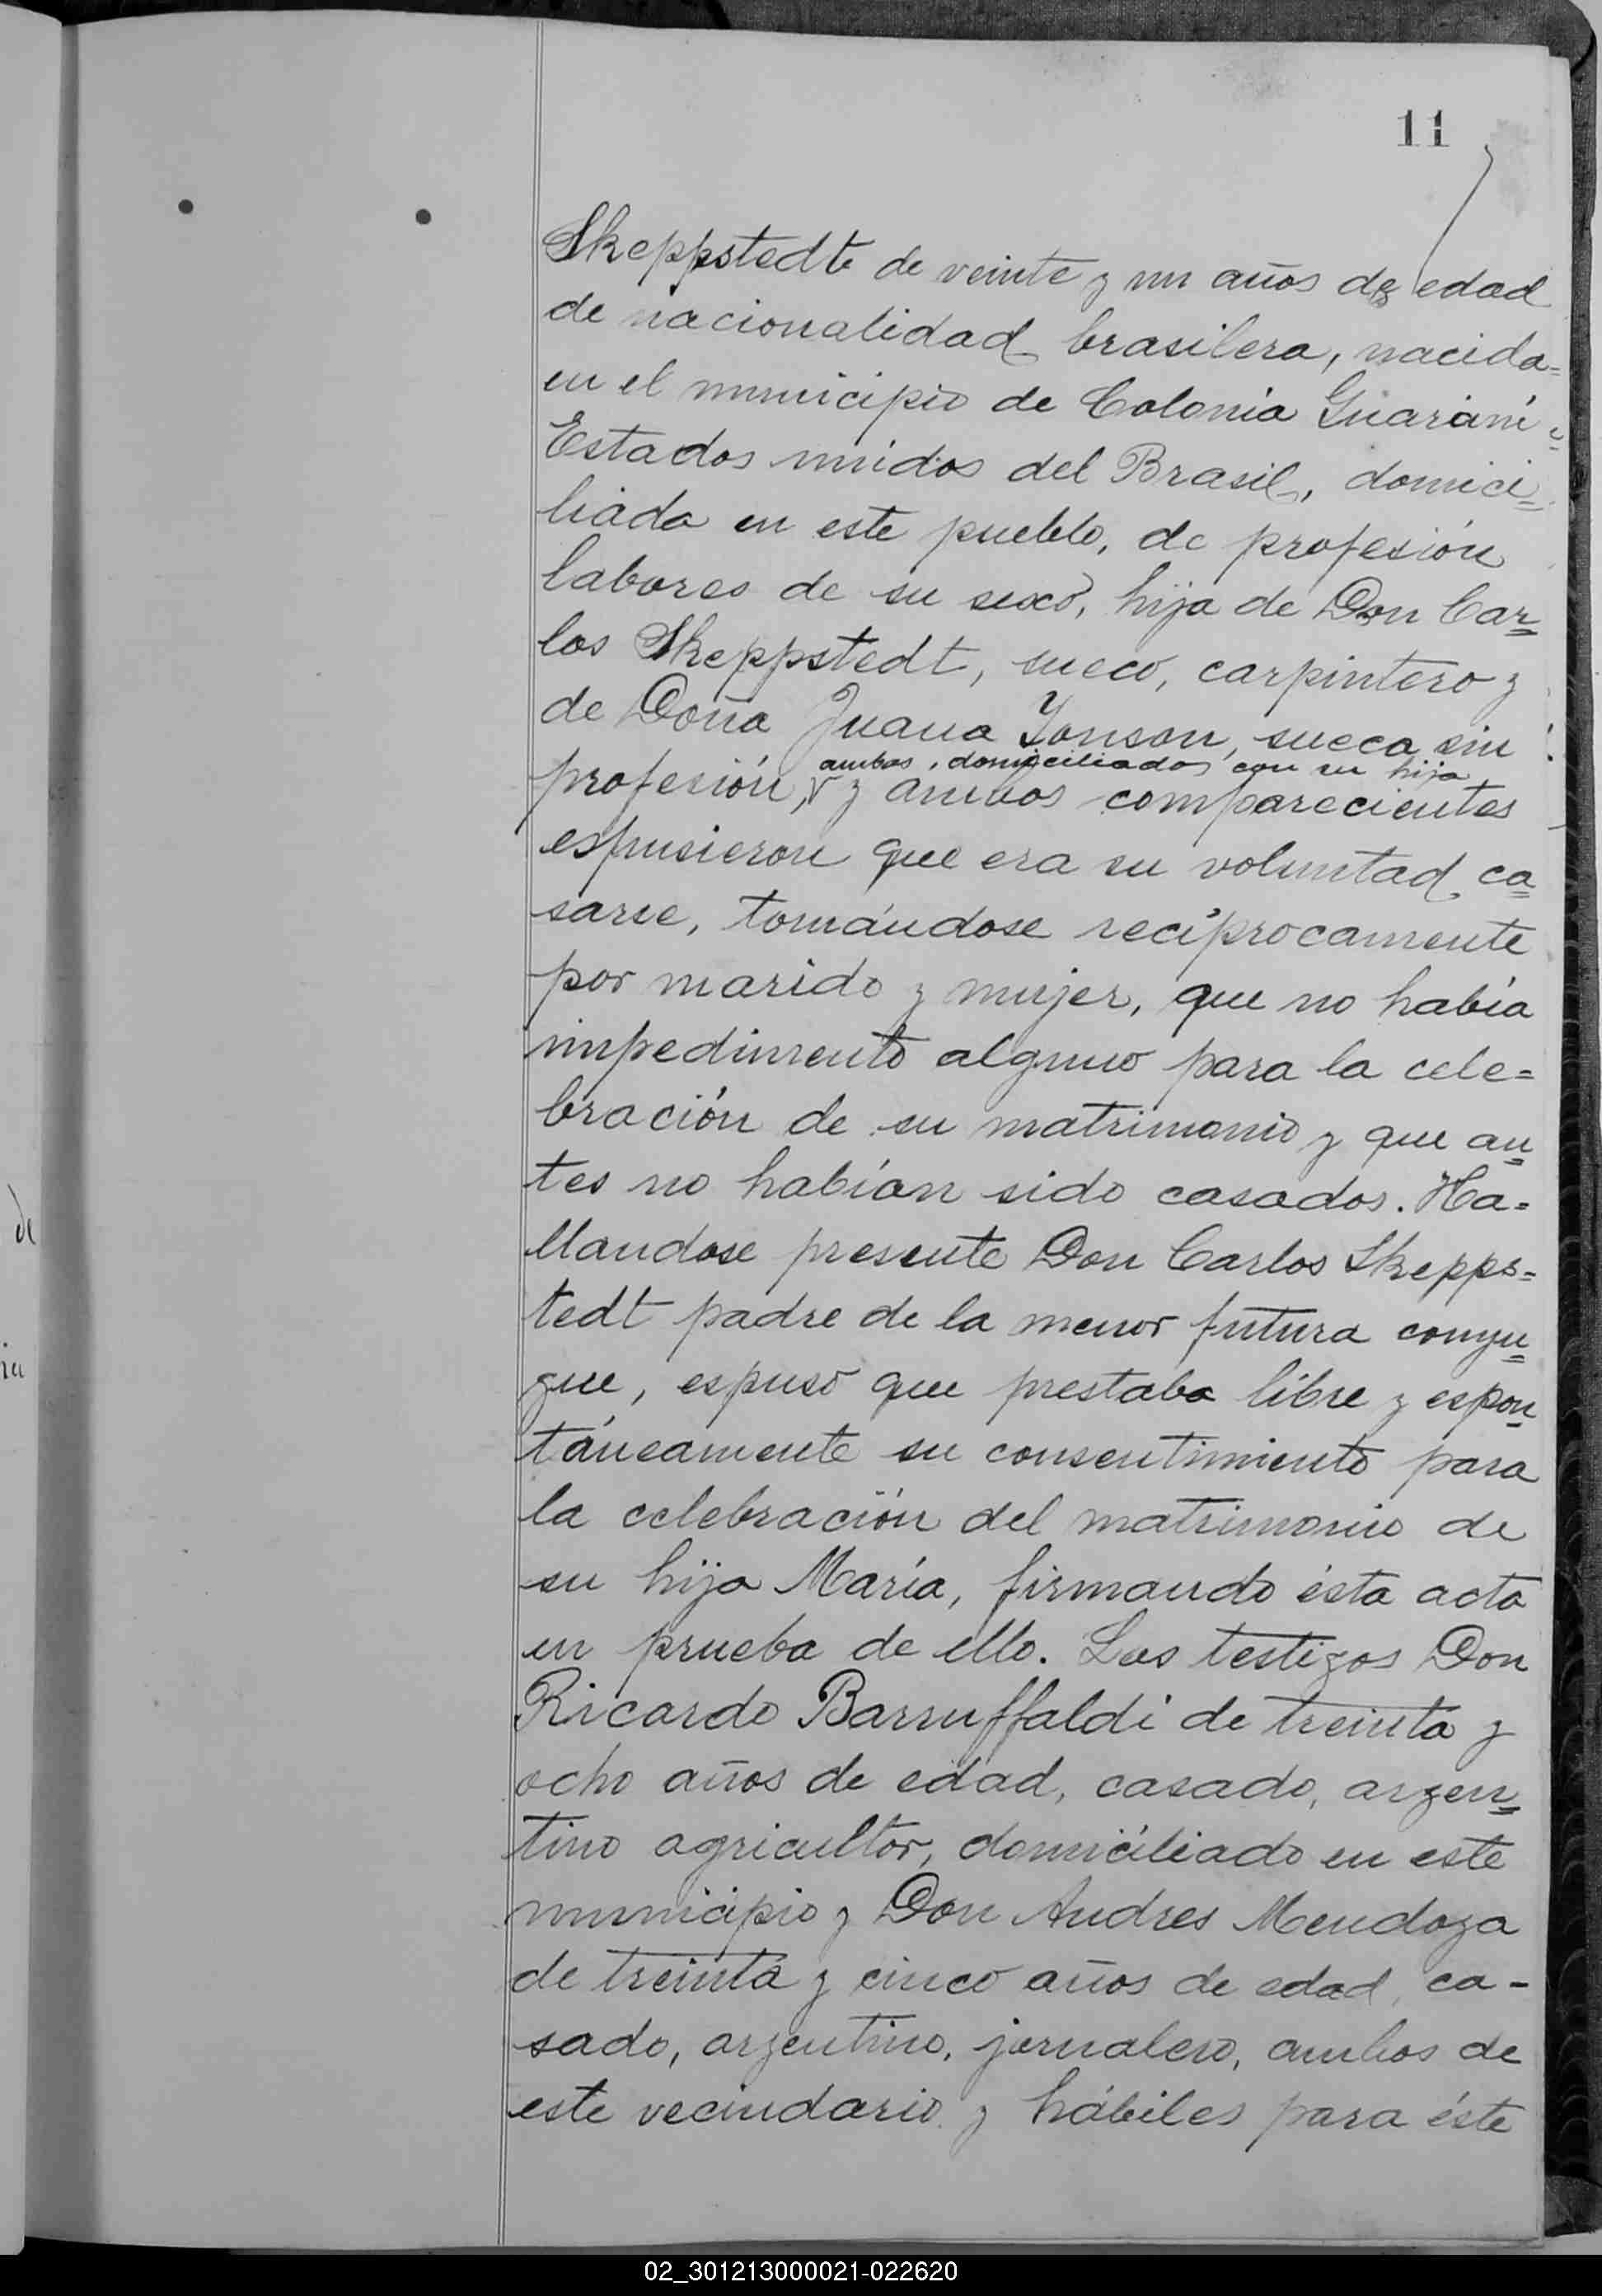 11
Skeppstedt de veinte y un años de edad
de nacionalidad brasilera, nacida=
en el municipio de Colonia Guaraní=
Estados unidos del Brasil, domici=
liada en este pueblo, de profesión
labores de su sexo, hija de Don Car=
los Skeppstedt, sueco, carpintero y
de Doña Juana Yonson, sueca sin
ambos, domiciliados con su hija
profesión, y ambos comparecientes
espusieron que era su voluntad ca=
sarse, tomándose recíprocamente
por marido y mujer, que no había
impedimento alguno para la cele=
bración de su matrimonio y que an=
tes no habían sido casados. Ha=
llandose presente Don Carlos Skepps=
tedt padre de la menor futura conyu=
gue, espuso que prestaba libre y espon=
táneamente su consentimiento para
la celebración del matrimonio de
su hija María, firmando ésta acta
en prueba de ello. Los testigos Don
Ricardo Barruffaldi de treinta y
ocho años de edad, casado, argen=
tino agricultor, domiciliado en este
municipio y Don Andres Mendoza
de treinta y cinco años de edad, ca-
sado, argentino, jornalero, ambos de
este vecindario y hábiles para éste
de
02_301213000021-022620